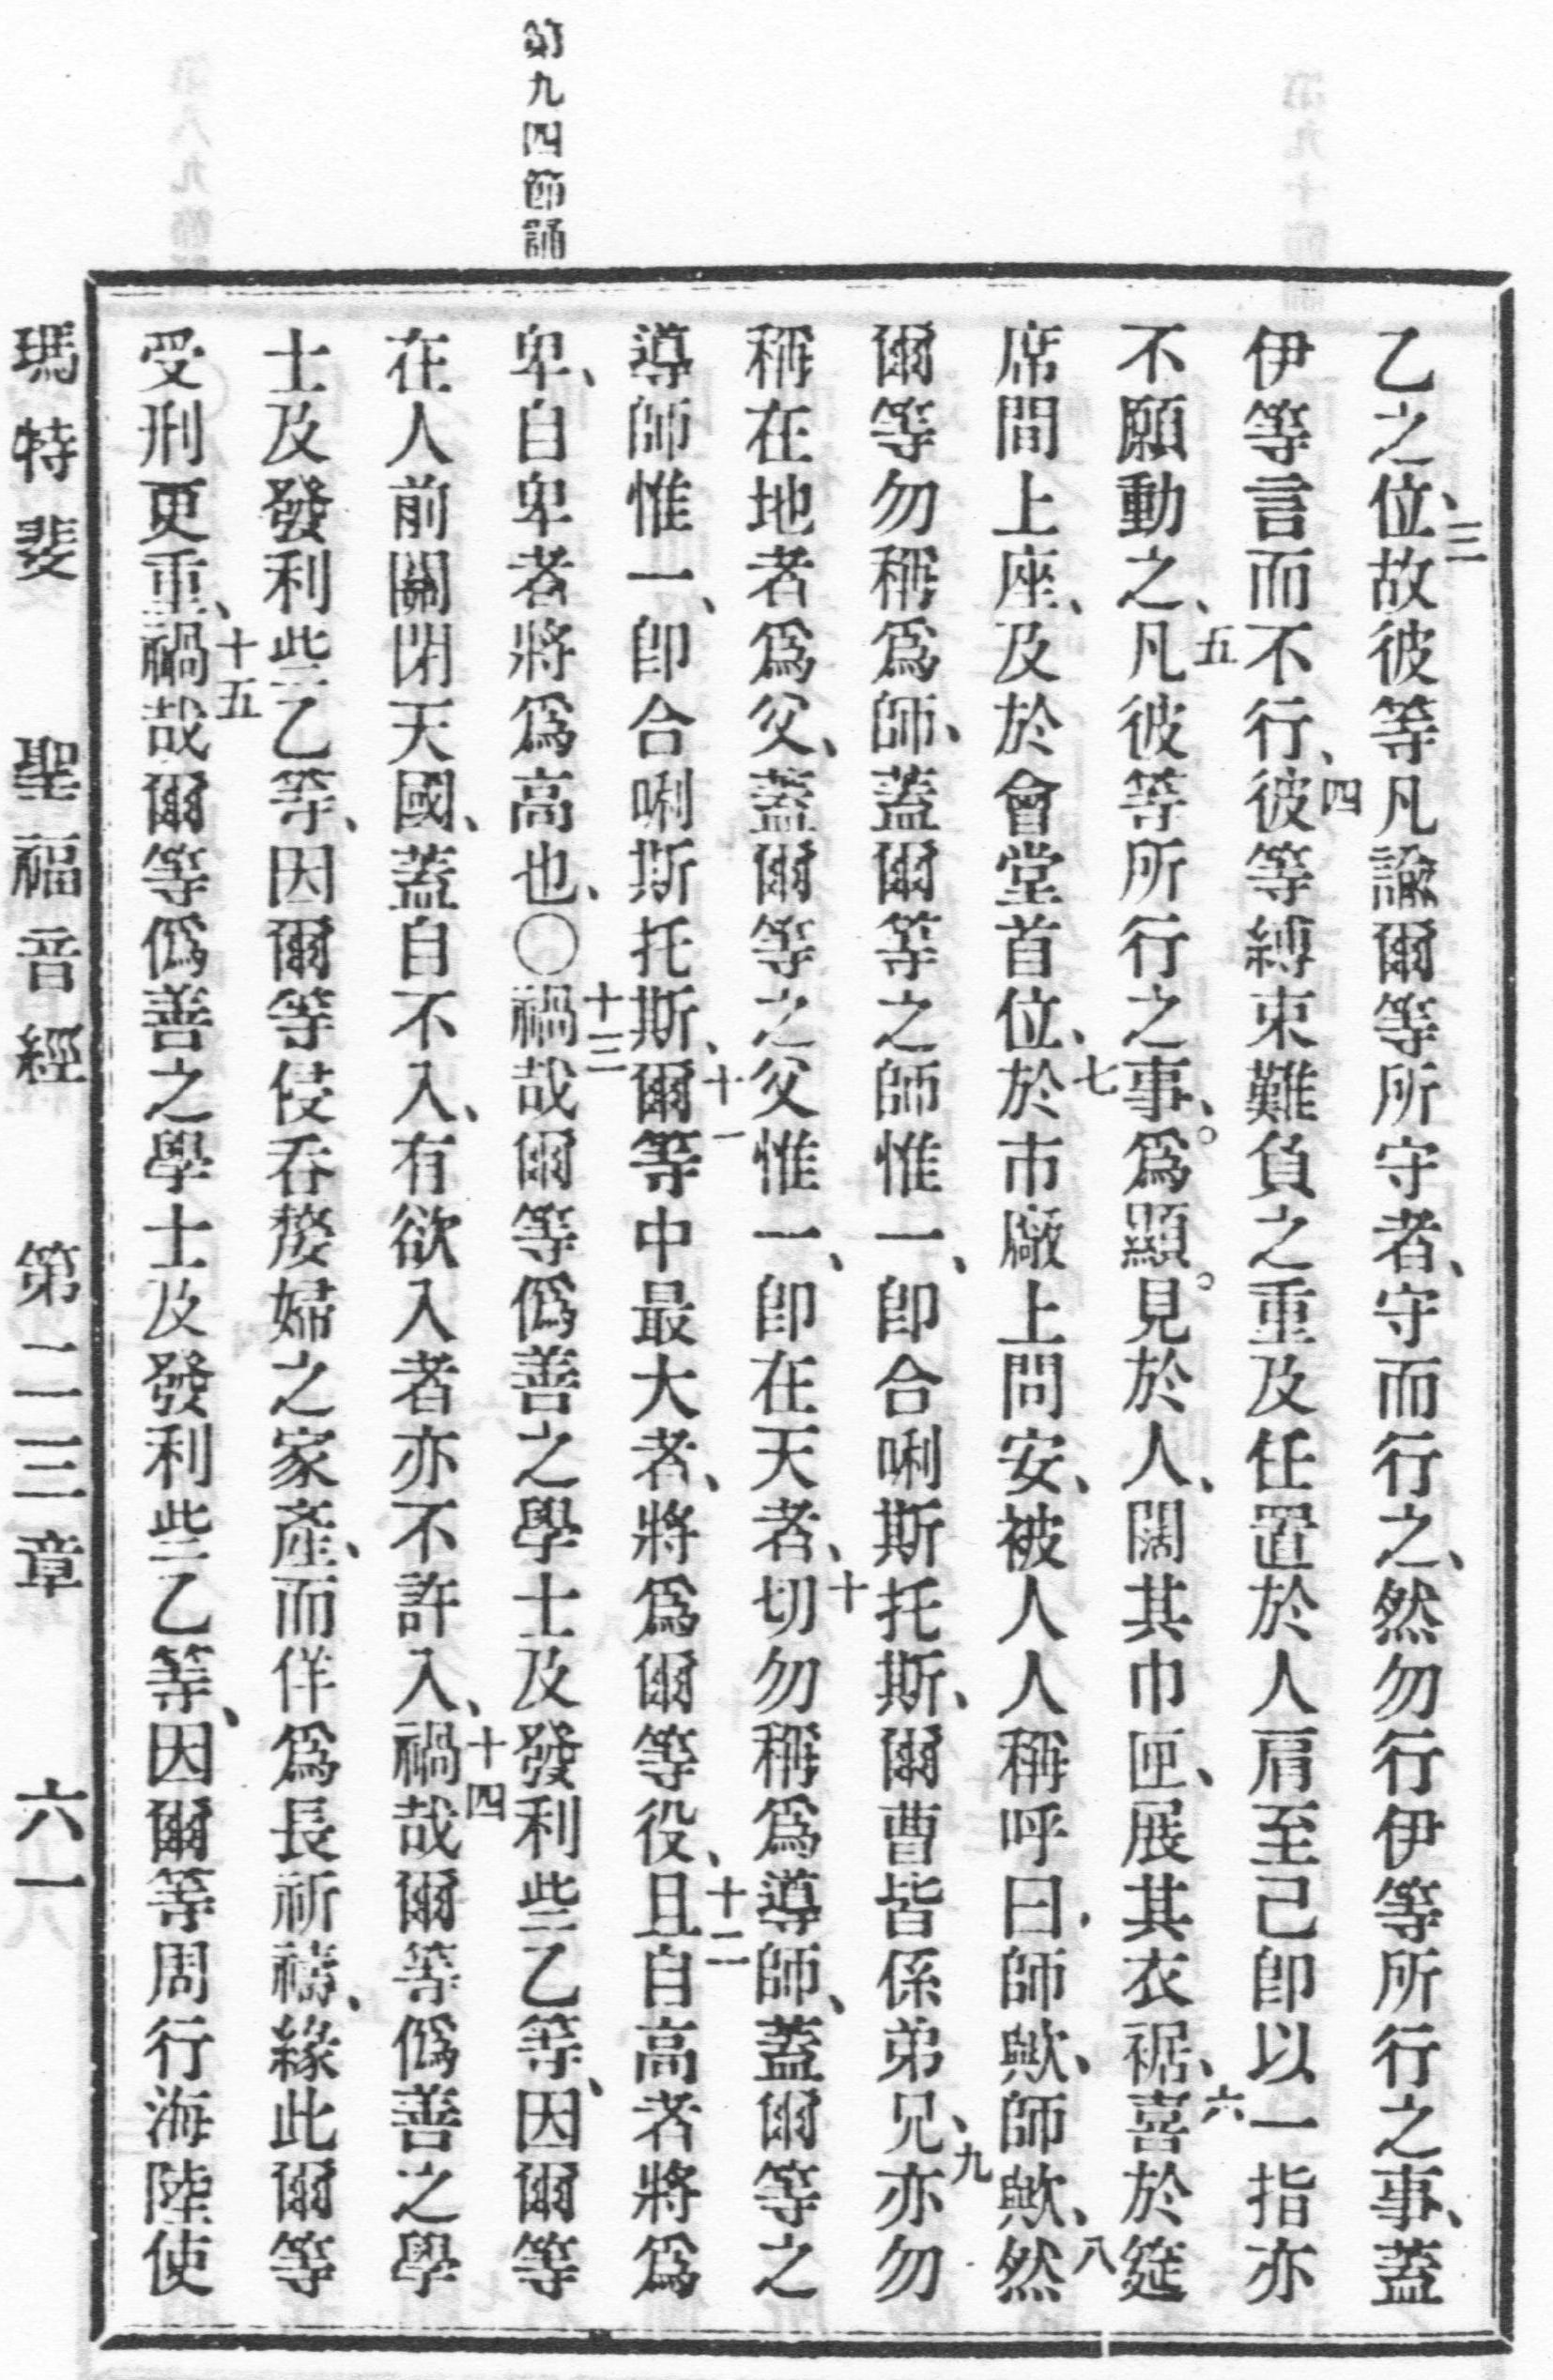 第九四節誦
乙之位、三故彼等凡諭爾等所守者、守而行之、然勿行伊等所行之事、蓋
伊等言而不行、四彼等縛束難負之重及任置於人肩至己卽以一指亦
不願動之、五凡彼等所行之事、爲顯見於人、闊其巾匣、展其衣裾、六喜於筵
席間上座、及於會堂首位、七於市廠上問安、被人人稱呼曰、師歟、師歟、八然
爾等勿稱爲師、蓋爾等之師惟一、卽合唎斯托斯、爾曹皆係弟兄、九亦勿
稱在地者爲父、蓋爾等之父惟一、卽在天者、十切勿稱爲導師、蓋爾等之
導師惟一、卽合唎斯托斯、十一爾等中最大者、將爲爾等役、十二且自高者將爲
卑、自卑者將爲高也、〇十三禍哉爾等僞善之學士及發利些乙等、因爾等
在人前關閉天國、蓋自不入、有欲入者亦不許入、十四禍哉爾等僞善之學
士及發利些乙等、因爾等侵吞嫠婦之家產、而佯爲長祈禱、緣此爾等
受刑更重、十五禍哉爾等僞善之學士及發利些乙等、因爾等周行海陸使
瑪特斐 聖福音經 第二三章 六一